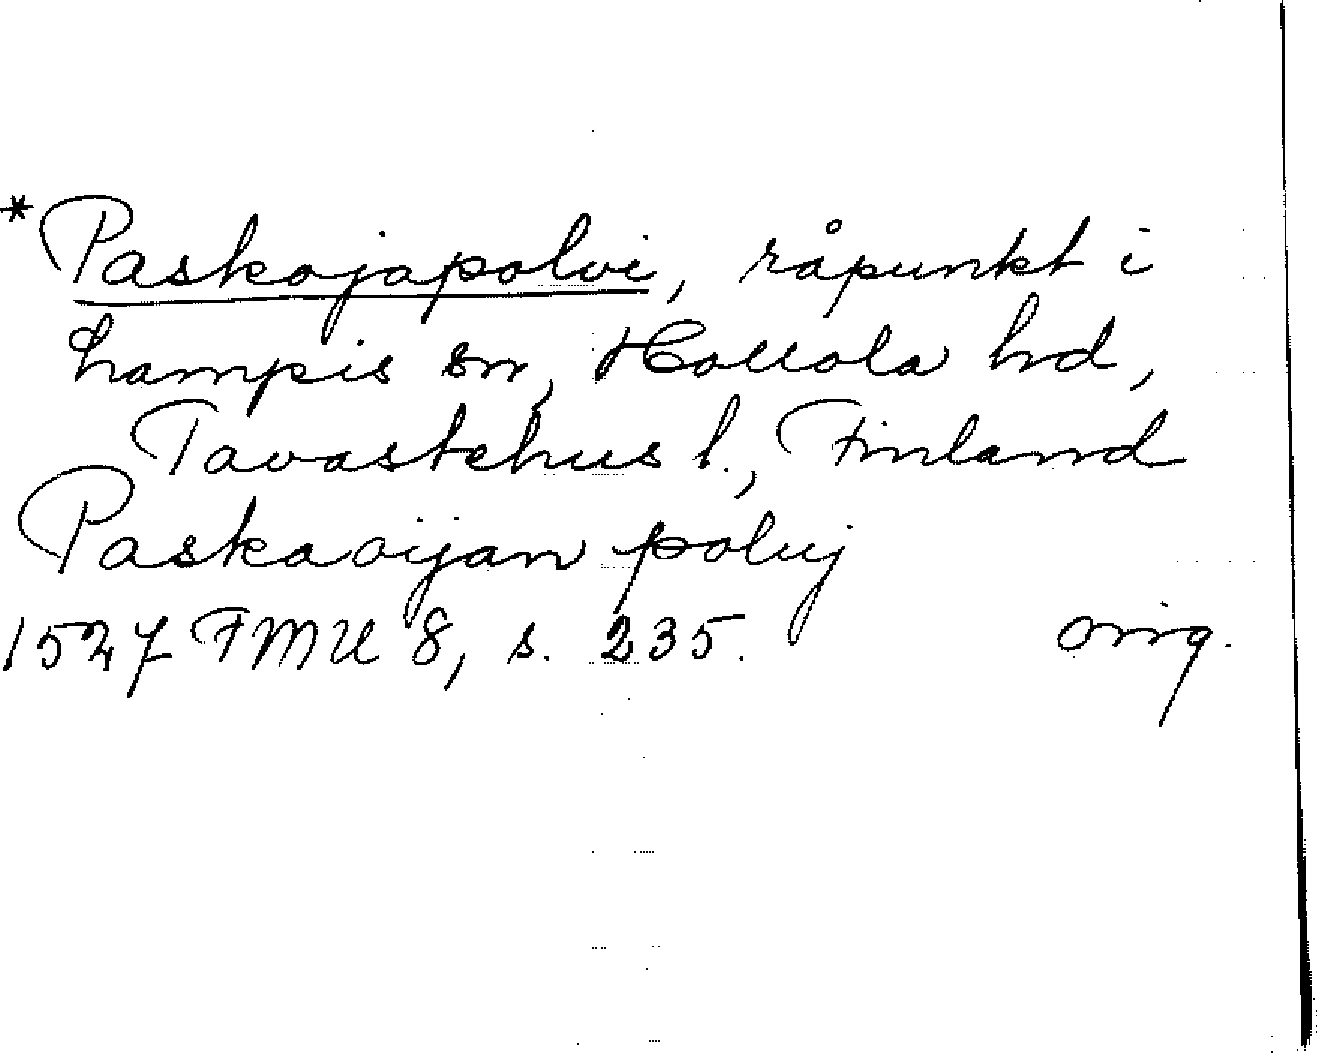 *Paskojapolvi, råpunkt i
Lampis sn, Hollola hd,
Tavastehus l., Finland
Paskaoijan poluij
1527 FMU 8, s. 235. orig.